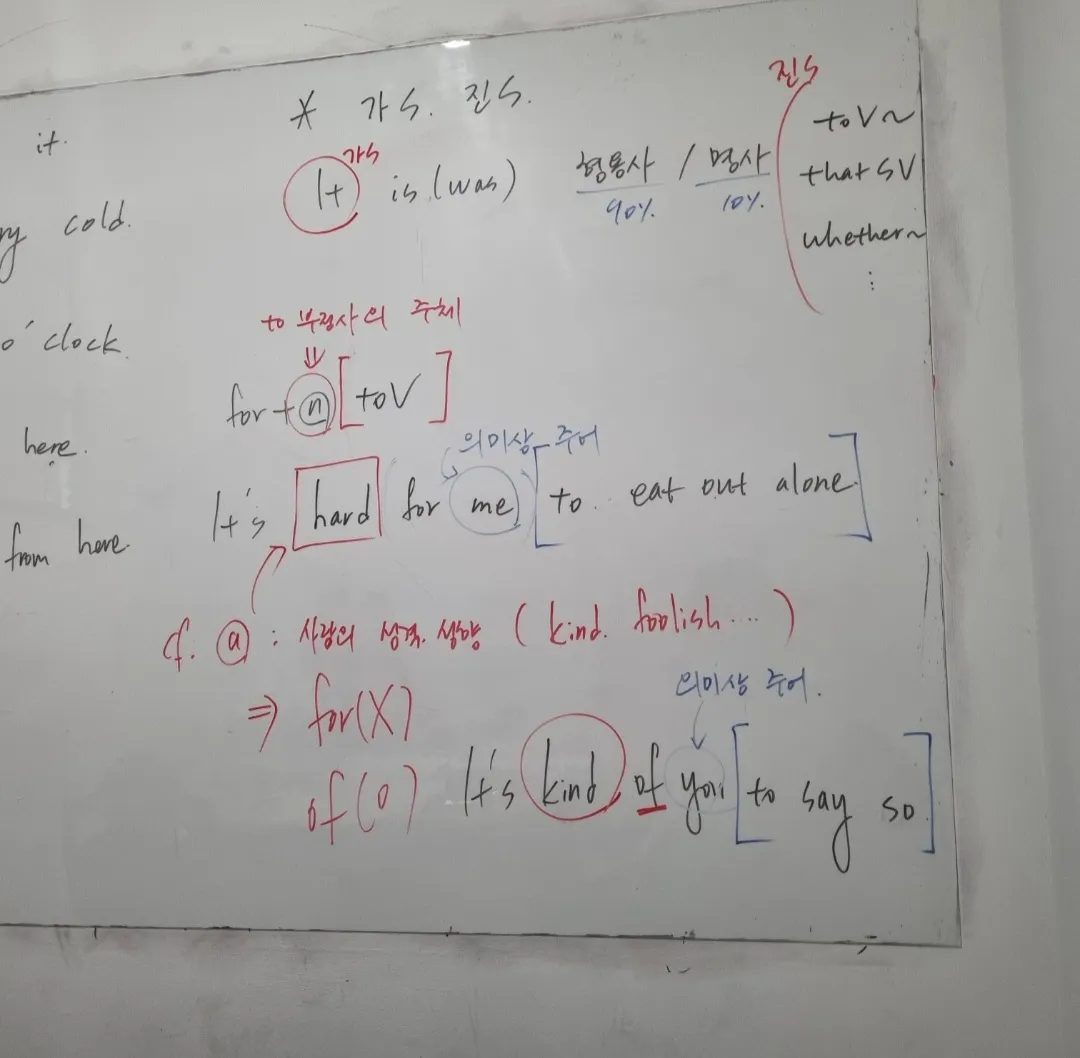 it.
cold.
o'clock.
here.
from here.
* 가S. 진S.
가S
It is (was) 형용사 / 명사
90% 10%
진S
to V~
that SV
whether~
⋮
to 부정사의 주체
⇓
for + ⓝ [to V]
의미상 주어
It's hard for me [to eat out alone]
cf. ⓐ : 사람의 성격. 성향 (kind. foolish....)
⇒ for(X)
of(O)
의미상 주어.
It's kind of you [to say so.]